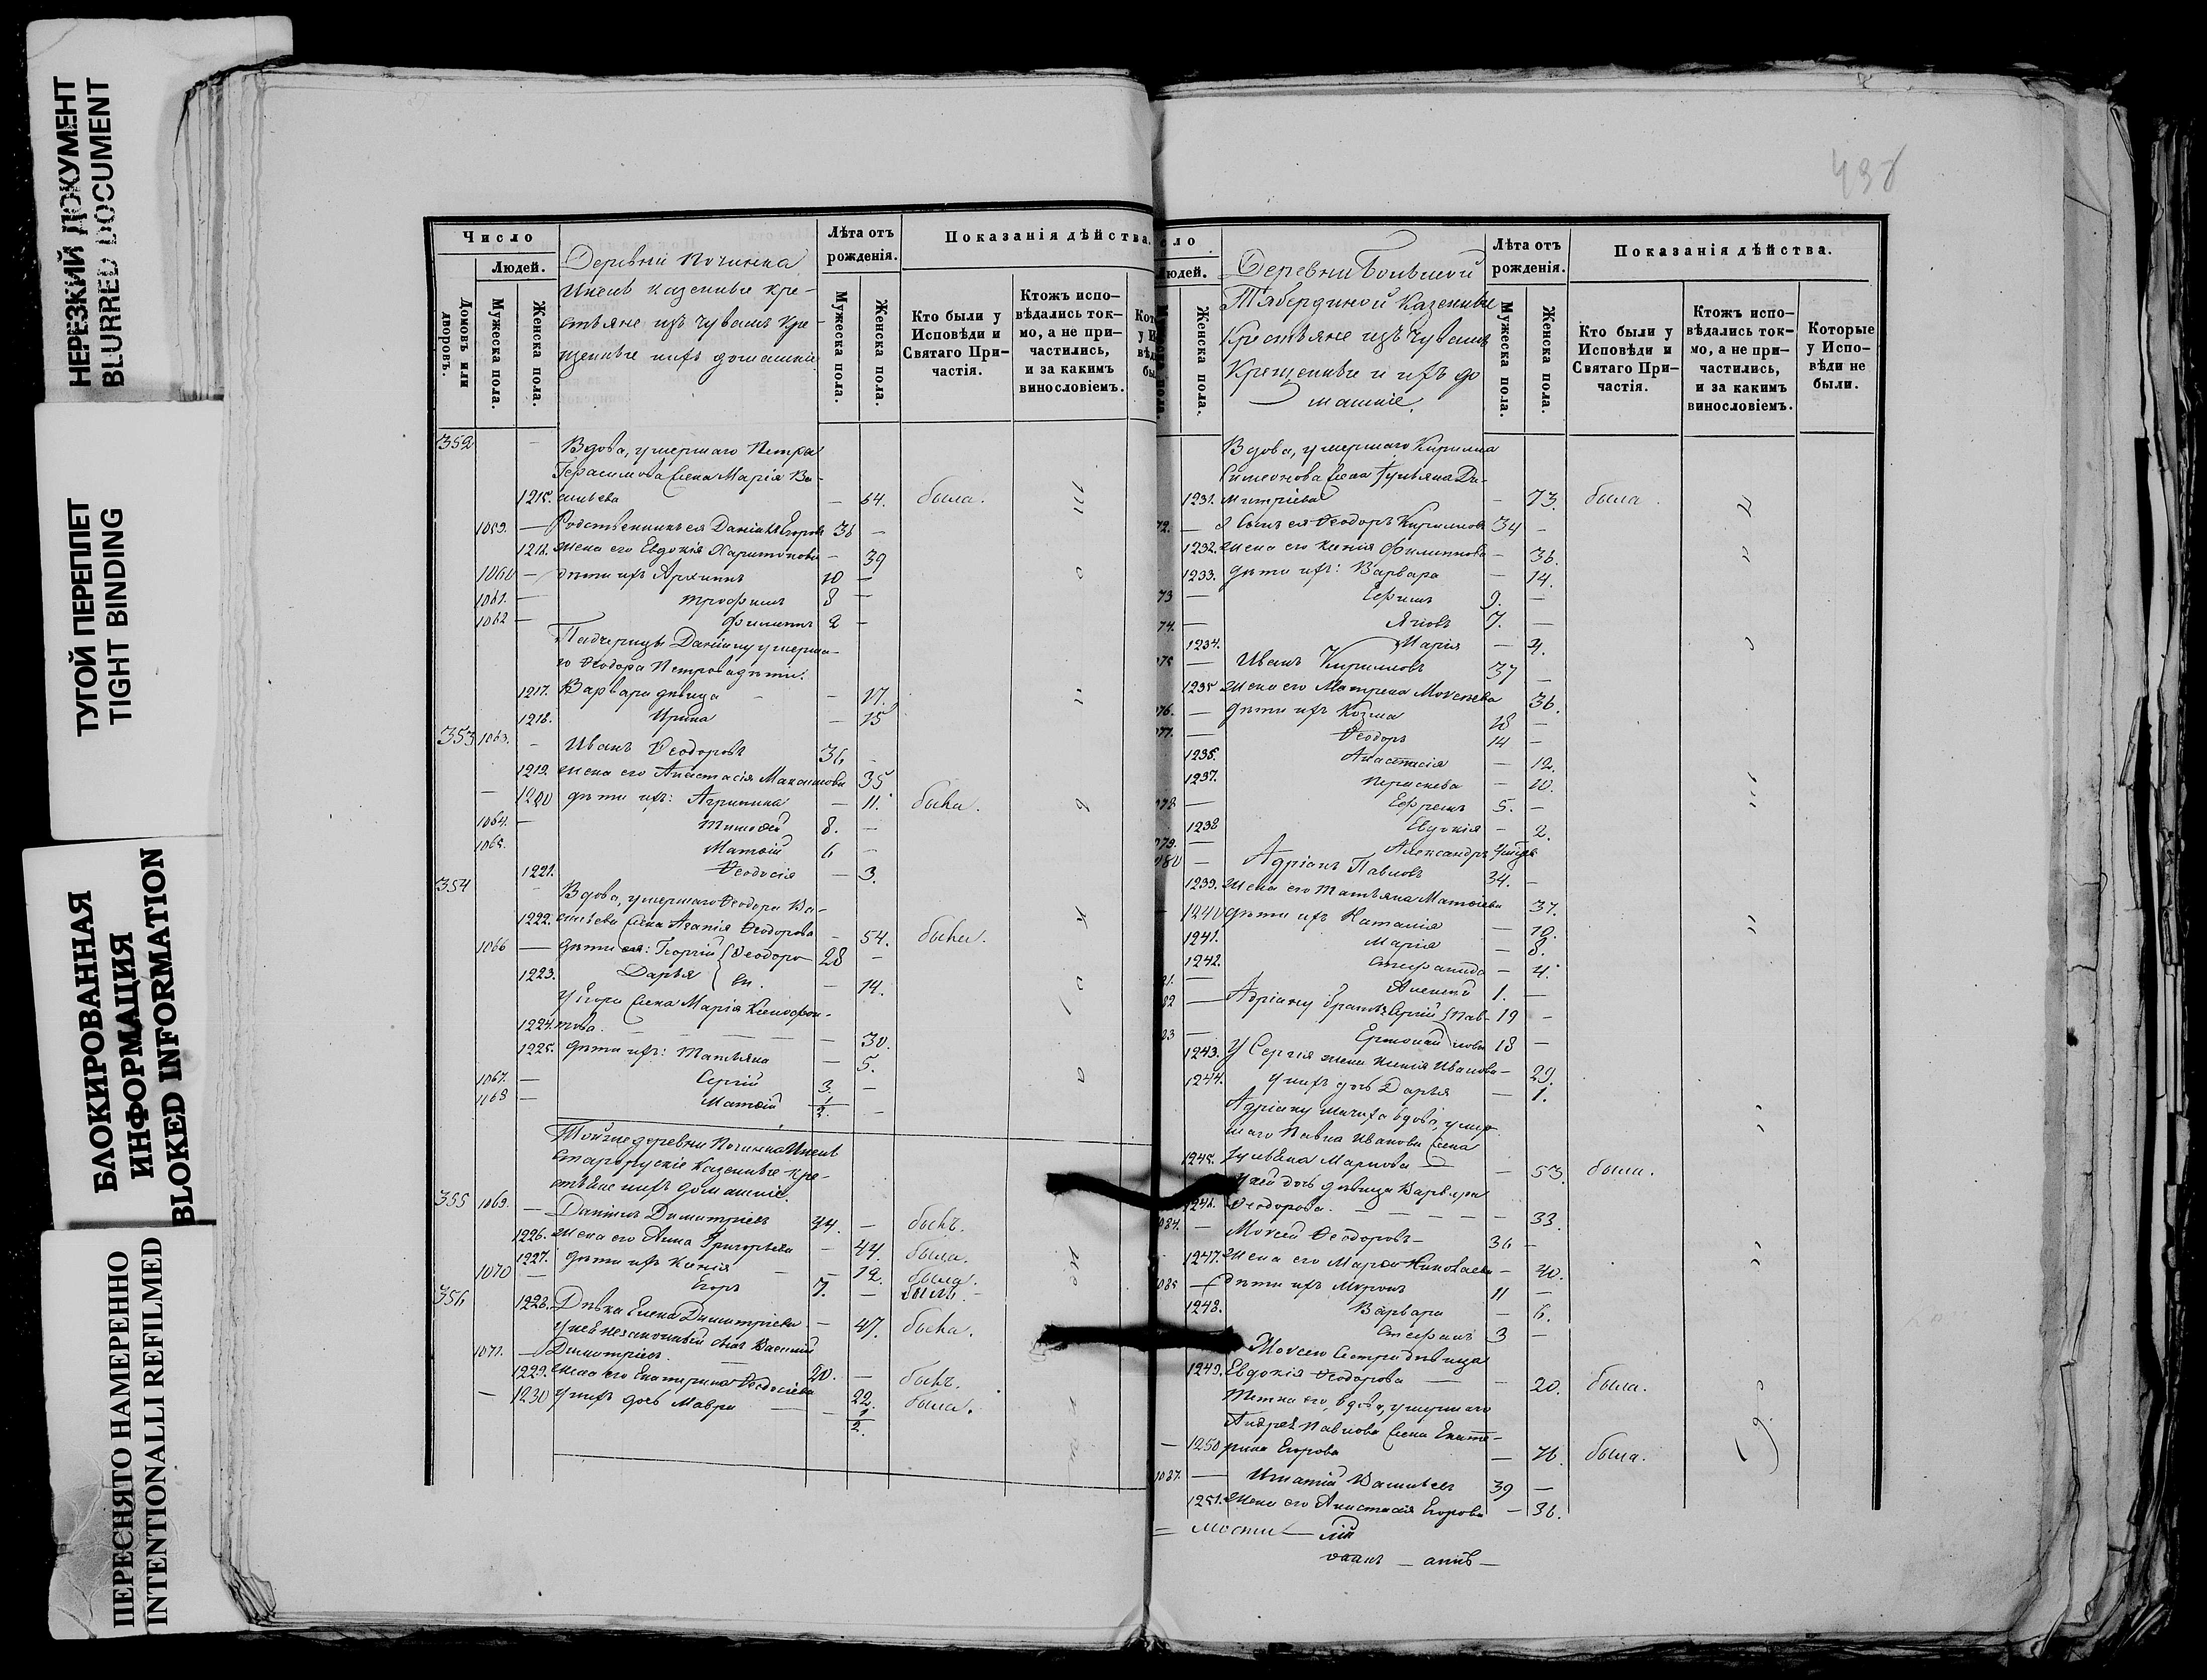 НЕРЕЗКИЙ ДОКУМЕНТ
BLURRED DOCUMENT
ТУГОЙ ПЕРЕПЛЕТ
TIGHT BINDING
БЛОКИРОВАННАЯ
ИНФОРМАЦИЯ
BLOKED INFORMATION
ПЕРЕСНЯТО НАМЕРЕННО
INTENTIONALLI REFILMED
Число
Людей.
Домовъ или дворовъ.
Мужеска пола.
Женска пола.
Деревни Починка
Инель казенные кре-
стьяне изъ Чувашъ кре-
щенные и ихъ домашніе
Лѣта отъ рожденія.
Мужеска пола.
Женска пола.
Показанія дѣйства.
Кто были у Исповѣди и Святаго При-частія.
Ктожъ испо-вѣдались ток-мо, а не при-частились, и за какимъ винословіемъ.
352 Вдова, умершаго Петра
Герасимова жена Марія Ва-
1215. сильева — 64. была.
1059. — Родственникъ ея Даніилъ Егоровъ 36 —
1216. жена его Евдокія Харитонова — 39
1060 — дѣти ихъ Архиппъ 10 —
1061. — Трофимъ 8 —
1062 — Филиппъ 2 —
Падчерицы Даніилу умерша-
го Ѳеодора Петрова дѣти:
1217. Варвара дѣвица — 17.
1218. Ирина — 15
353 1063. — Иванъ Ѳеодоровъ 36 —
1219. жена его Анастасія Максимова 35.
1220 дѣти ихъ: Агрипина — 11. была.
1064. — Тимоѳей 8. —
1065. Матѳій 6 —
1221. Ѳеодосія — 3.
354 Вдова, умершаго Ѳеодора Ва-
1222. сильева жена Агапія Ѳеодорова — 54. была.
1066 — дѣти ея: Георгій { Ѳеодоро- 28 —
1223. Дарья { вы. — 14.
У Егора жена Марія Ксенофон-
1224. това. — 30.
1225. дѣти ихъ: Татьяна — 5.
1067. — Сергій 3. —
1068 — Матѳій 1/2. —
Той же деревни Починка Инель
Старорусскіе казенные кре-
стьяне и ихъ домашніе.
355 1069. — Даніилъ Димитріевъ 44. — былъ.
1226. жена его Анна Григорьева — 44. была.
1227. дѣти ихъ Ксенія — 12. была.
1070 — Егоръ 7. — былъ.
356 1228. Дѣвка Елена Димитріева — 47. была.
у нея незаконный сынъ Василій
1071. — Димитріевъ. 20. — былъ.
1229. жена его Екатерина Ѳеодосіева 22. была.
— 1230 у нихъ дочь Мавра — 1/2.
Людей.
Женска пола.
Деревни Большой
Тябердиной казенные
крестьяне изъ Чувашъ
крещенные и ихъ до
машніе.
Лѣта отъ рожденія.
Мужеска пола.
Женска пола.
Показанія дѣйства.
Кто были у Исповѣди и Святаго При-частія.
Ктожъ испо-вѣдались ток-мо, а не при-частились, и за какимъ винословіемъ.
Которые у Испо-вѣди не были.
Вдова, умершаго Кирилла
Симеонова жена Іульяна Ди-
1231. митріева — 73. была.
72. — Сынъ ея Ѳеодоръ Кирилловъ 34 —
1232. жена его Ксенія Филиппова — 36.
1233. дѣти ихъ: Варвара — 14.
73 — Ефимъ 9. —
74. — Яковъ 7. —
1234. Марія — 4.
075 — Иванъ Кирилловъ 37 —
1235 жена его Матрена Моисеева 36.
076. — дѣти ихъ Козма 18 —
077. — Ѳеодоръ 14 —
1236. Анастасія — 12.
1237. Параскева — 10.
078 — Ефремъ 5. —
1238 Евдокія — 2.
079. — Александръ
080 — Адріанъ Павловъ 34. —
1239. жена его Татьяна Матѳіева 37.
1240 дѣти ихъ Наталія — 10.
1241. Марія — 8.
1242. Стефанида — 4.
81. — Алексій 1. —
82 — Адріану братья Сергій { Пав- 19 —
83 — Ермолай } ловы 18 —
1243. У Сергія жена Ксенія Иванова — 29.
1244. у нихъ дочь Дарья — 1.
Адріану мачиха вдова, умер-
шаго Павла Иванова жена
1245. Іульяна Маркова — 53. была.
У ней дочь дѣвица Варвара
1246. Ѳеодорова. — 33.
084. — Моисей Ѳеодоровъ — 36 —
1247. жена его Марѳа Николаева — 40.
085 — дѣти ихъ Миронъ 11 —
1248. Варвара — 6.
Стефанъ 3 —
Моисею сестра дѣвица
1249. Евдокія Ѳеодорова — 20. была.
Тетка его, вдова, умершаго
Андрея Павлова жена Екате-
— 1250 рина Егорова — 76. была.
1087. — Игнатій Васильевъ 39 —
1251. жена его Анастасія Егорова — 36.